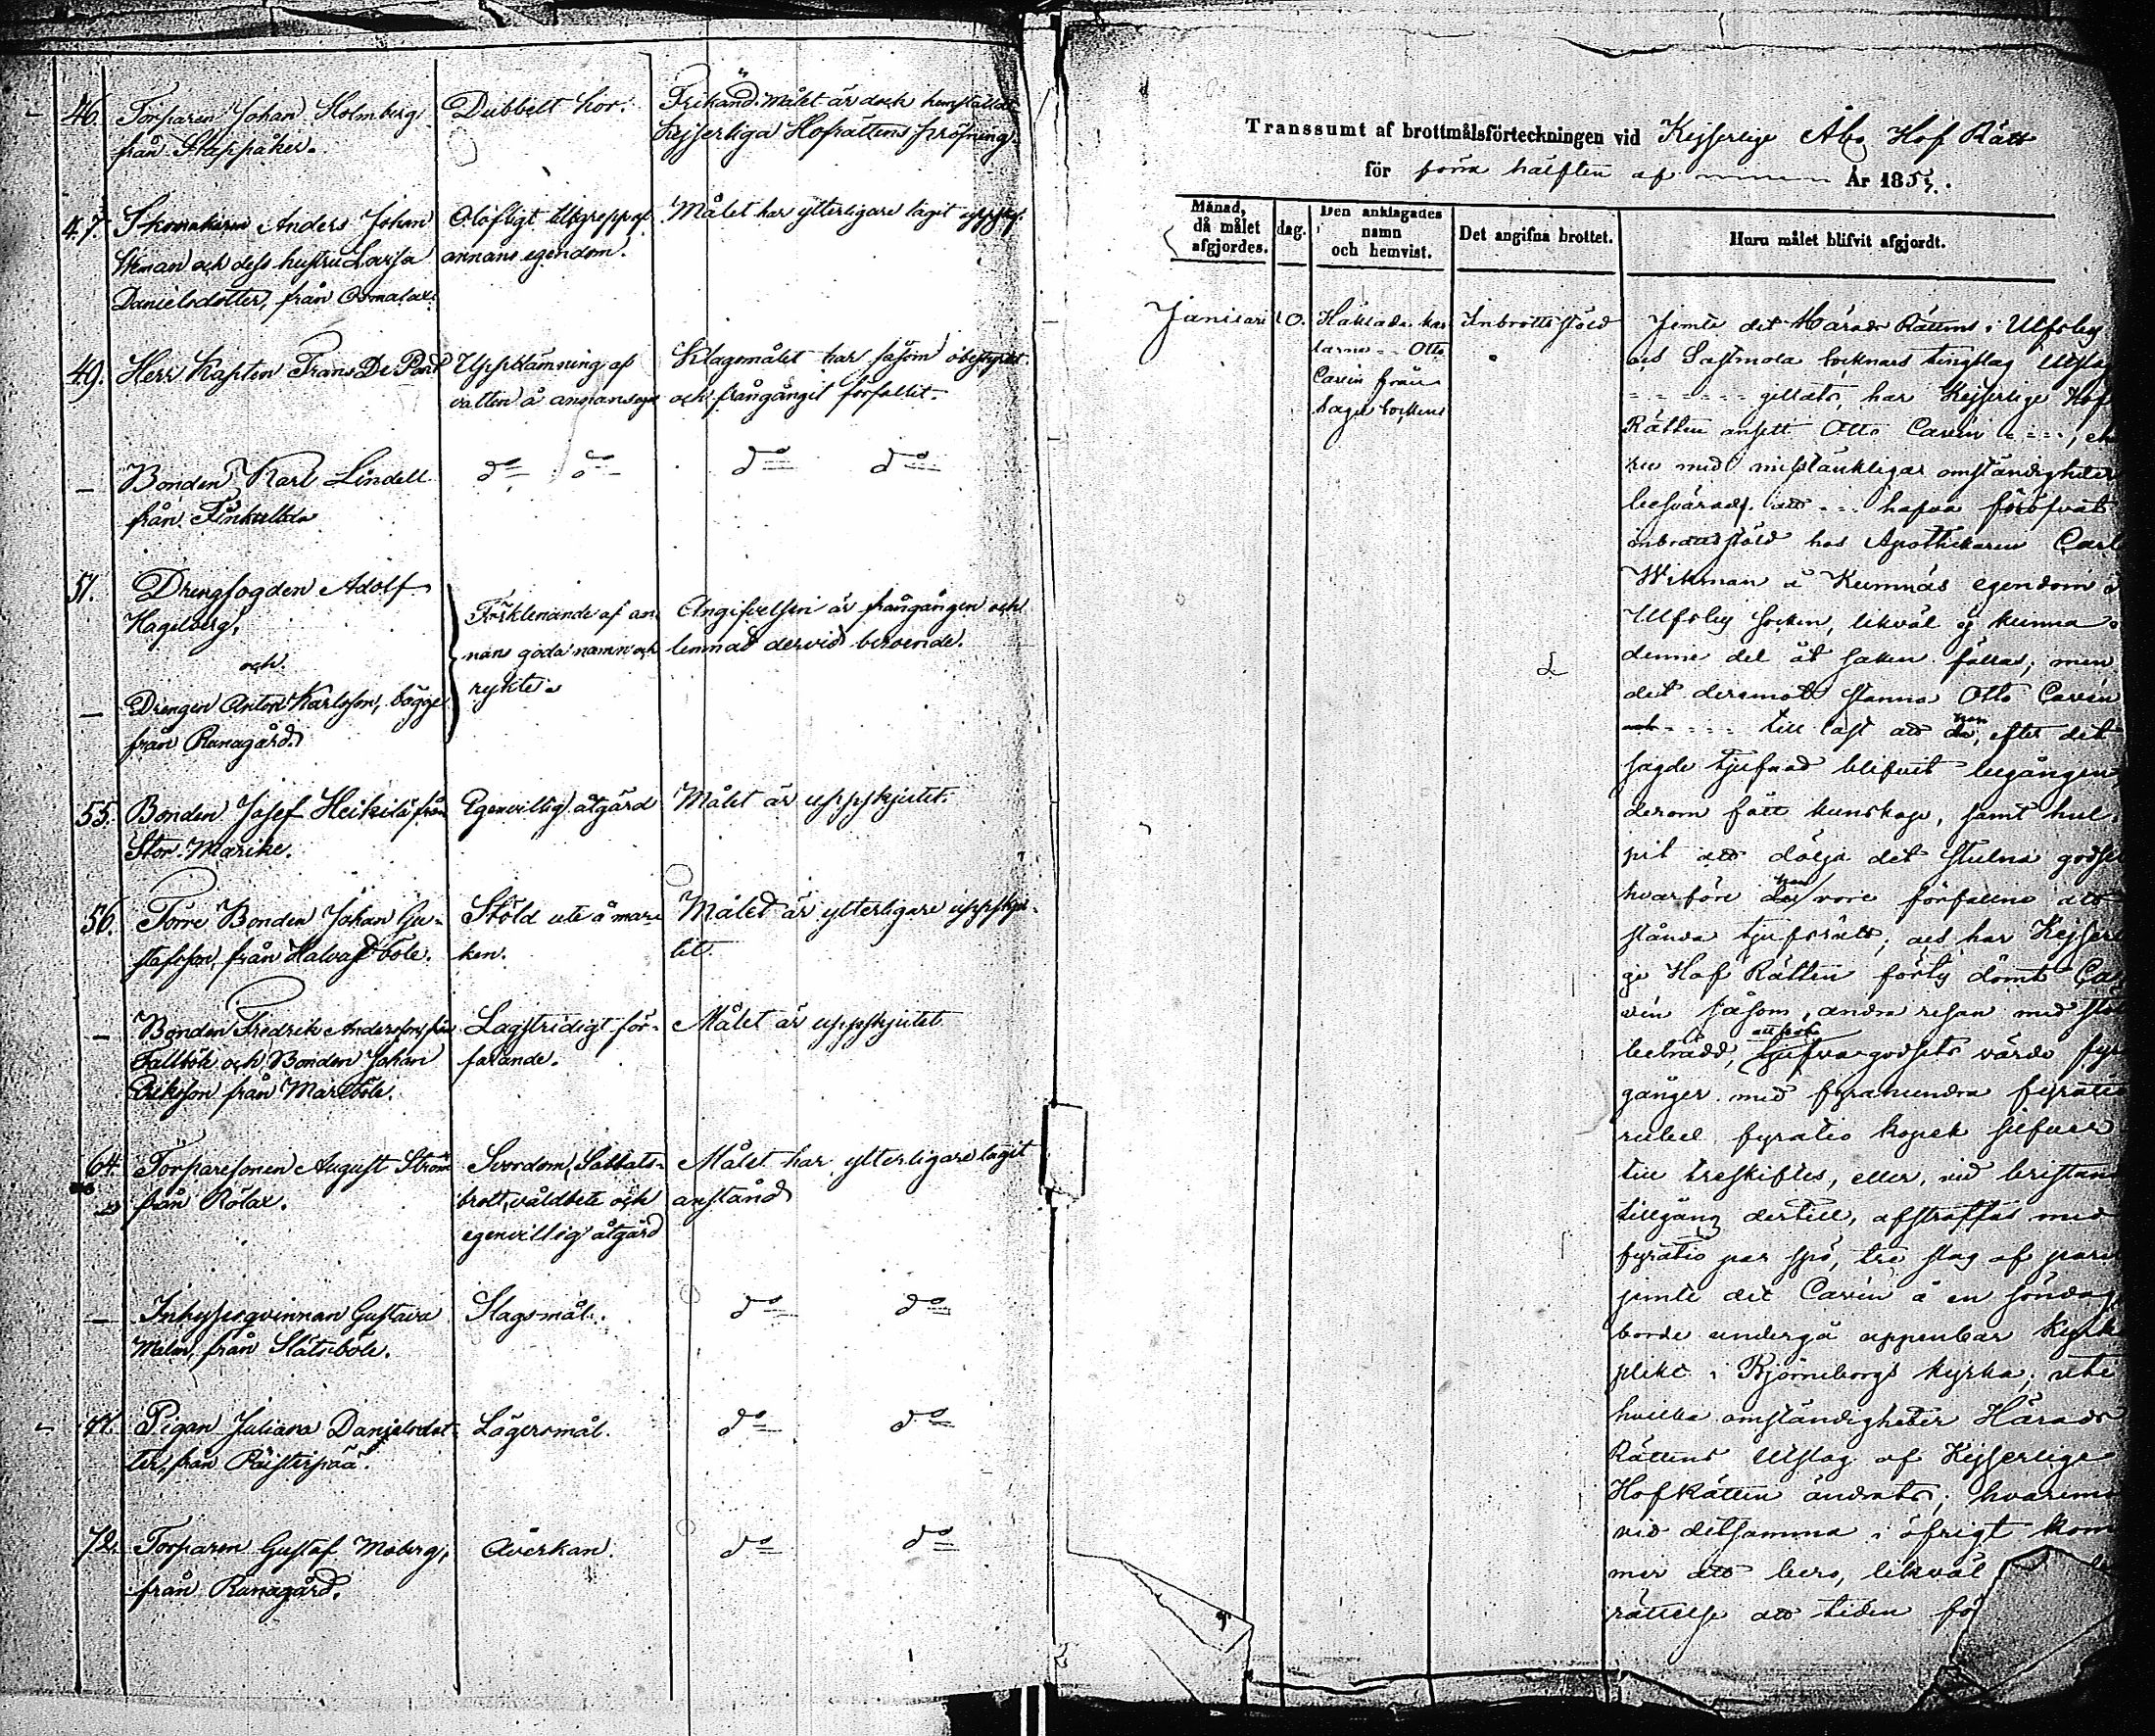 46. Torparen Johan Holmberg Dubbelt hor. Frikänd. Målet är dock hemstäldt
från Stappåker. Kejserliga Hofrättens pröfning.
47. Skomakaren Anders Johan Olofligt tillgrepp af Målet har ytterligare tagit uppskof.
och dess hustru Lovisa annans egendom.
Danielsdotter, från
49. Herr Kapten Frans De Pont Uppdämning af Klagomålet har såsom obestyrkt
vatten å annans och frångånget förfallit.
— Bonden Karl Lindell do do do do
från Finkulla
51. Drengfogden Adolf
Hagelberg, Förklenande af an- Angifvelsen är frångången och
och nans goda namn och lemnad dervid beroende.
— Drengen Anton Karlsson, bägge rykte.
från Ranagård.
55. Bonden Josef Heikilä från Egenvillig åtgärd Målet är uppskjutet.
Stor-Marike.
56. Förre Bonden Johan Gu- Stöld ute å mar- Målet är ytterligare uppskju-
stafsson, från Halvasbole. ken. tet.
— Bonden Fredrik Andersson från Lagstridigt för- Målet är uppskjutet
Fallböle och Bonden Johan farande.
Eriksson från Marböle.
64. Torparesonen August Ström Svordom, Sabbats- Målet har ytterligare tagit
från Rölax. brott, våldbete och anstånd
egenvillig åtgärd
— Inhysesqvinnan Gustava Slagsmål. do do
Malm, från Slätsböle.
71. Pigan Juliana Danielsdot- Lägersmål. do do
ter, från Päisterpää.
72. Torparen Gustaf Moberg, Åverkan. do do
från Ranagård.
Transsumt af brottmålsförteckningen vid Kejserlige Åbo Hof Rätt
för förra hälften af År 185
Månad, då målet afgjordes. dag. Den anklagades namn och hemvist. Det angifna brottet. Huru målet blifvit afgjordt.
Januari 10. Häktade kar Inbrottsstöld Jemte det Härads Rättens i Ulfsby
larne - - Otto och Sastmola socknars tingslag utslag
Cavén från - - - - gillats, har Kejserlige Hof
socken Rätten ansett Otto Cavén - - -,
med misstänkliga omständigheter
besvärad, att - - hafva föröfvat
inbrottsstöld hos Apothekaren Carl
Wikman å Kumnäs egendom i
Ulfsby socken, likväl ej kunna
denne del åt saken fällas; men
det deremot stanna Otto Cavén
- - - - till last att han, efter det
sagde tjufnad blifvit begången,
derom fått kunskap, samt hul-
pit att dölja det stulna godset
hvarföre han vore förfallen att
stånda tjufsrätt; och har Kejserli
ge Hof Rätten förty dömt Ca
vén såsom, andra resan med stöld
beträdd, att godsets värde fyra
gånger med fyrahundra fyratio
rubel fyratio kopek silfver
till treskiftes, eller, vid bristande
tillgång dertill, afstraffas med
fyratio par spö, tre slag af paret
jemte det Cavén å en söndag
borde undergå uppenbar Kyrko
plikt i Björneborgs kyrka; uti
hvilka omständigheter Härads
Rättens Utslag af Kejserlige
Hofrätten ändrats; hvaremot
vid detsamma i öfrigt kom
mer att bero, likväl
rättelse att tiden för